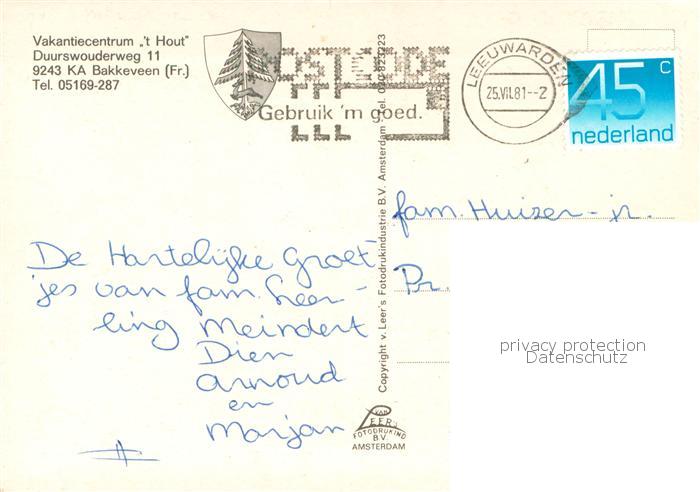 Vakantiecentrum „'t Hout"
Duurswouderweg 11
9243 KA Bakkeveen (Fr.)
Tel. 05169-287
POSTCODE
Gebruik 'm goed.
LEEUWARDEN
25.VII.81--2
45 c
nederland
fam. Huizer-jr.
Pr.
privacy protection
Datenschutz
De Hartelijke Groet
'jes van fam. Heer-
ling Meindert
Dien
Arnoud
en
Marjan
Copyright v. Leer's Fotodrukindustrie B.V. Amsterdam - Tel.
VAN
LEER's
FOTODRUKIND
B.V.
AMSTERDAM